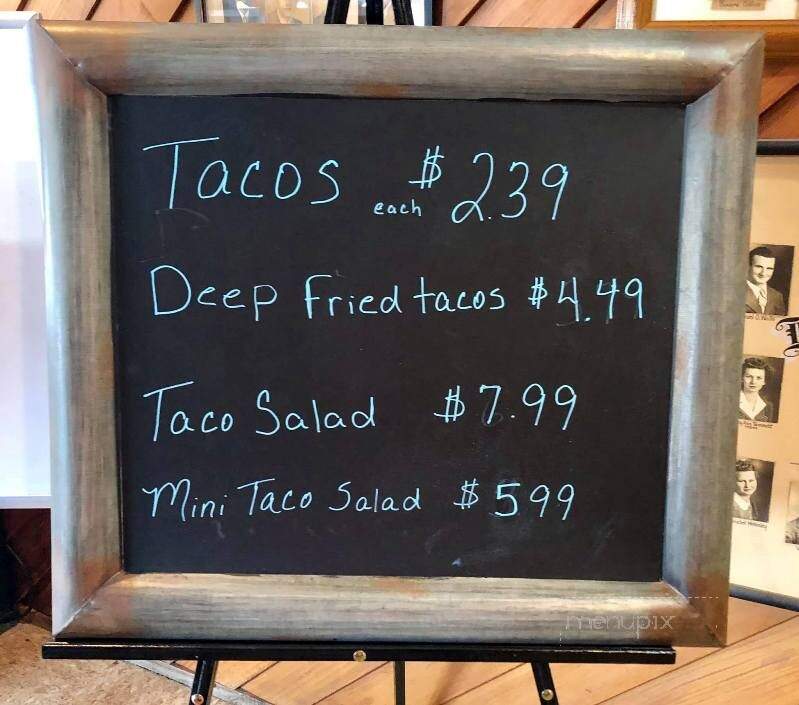 Tacos each $2.39
Deep Fried tacos $4.49
Taco Salad $7.99
Mini Taco Salad $599
menupix